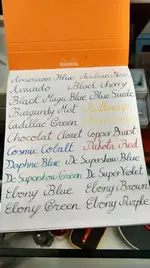 RHODIA
American Blue Arabian Rose
Avocado Black Cherry
Black Magic Blue Blue Suede
Burgundy Mist Buttercup
Cadillac Green
Chocolat Claret Copper Burst
Cosmic Cobalt Dakota Red
Daphne Blue Dc Supershow Blue
Dc Supershow Green Dc Super Violet
Ebony Blue Ebony Brown
Ebony Green Ebony Purple